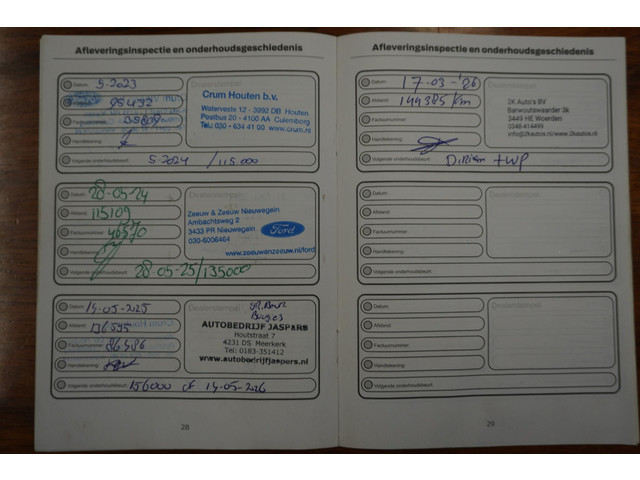 Afleveringsinspectie en onderhoudsgeschiedenis
Datum: 5-2023
Afstand: 95432
Factuurnummer:
Handtekening:
Volgende onderhoudsbeurt: 5 2024 / 115.000
Crum Houten b.v.
Waterveste 12 - 3992 DB Houten
Postbus 20 - 4100 AA Culemborg
Tel.: 030 - 634 41 00 www.crum.nl
Datum: 28-05-24
Afstand: 115109
Factuurnummer: 46570
Handtekening:
Volgende onderhoudsbeurt: 28-05-25/135000
Dealerstempel
Zeeuw & Zeeuw Nieuwegein
Ambachtsweg 2
3433 PR Nieuwegein
030-6006464
Ford
www.zeeuwenzeeuw.nl/ford
Datum: 14-05-2025
Afstand: 136595
Factuurnummer: 86586
Handtekening:
Volgende onderhoudsbeurt: 156000 of 14-05-2026
Dealerstempel
AUTOBEDRIJF JASPERS
Houtstraat 7
4231 DS Meerkerk
Tel: 0183-351412
www.autobedrijfjaspers.nl
28
Afleveringsinspectie en onderhoudsgeschiedenis
Datum: 17-03-'26
Afstand: 144385 km
Factuurnummer:
Handtekening:
Volgende onderhoudsbeurt:
2K Auto's BV
Barwoutswaarder 3k
3449 HE Woerden
0348-414499
info@2kautos.nl/www.2kautos.nl
Datum:
Afstand:
Factuurnummer:
Handtekening:
Volgende onderhoudsbeurt:
Dealerstempel
Datum:
Afstand:
Factuurnummer:
Handtekening:
Volgende onderhoudsbeurt:
Dealerstempel
29